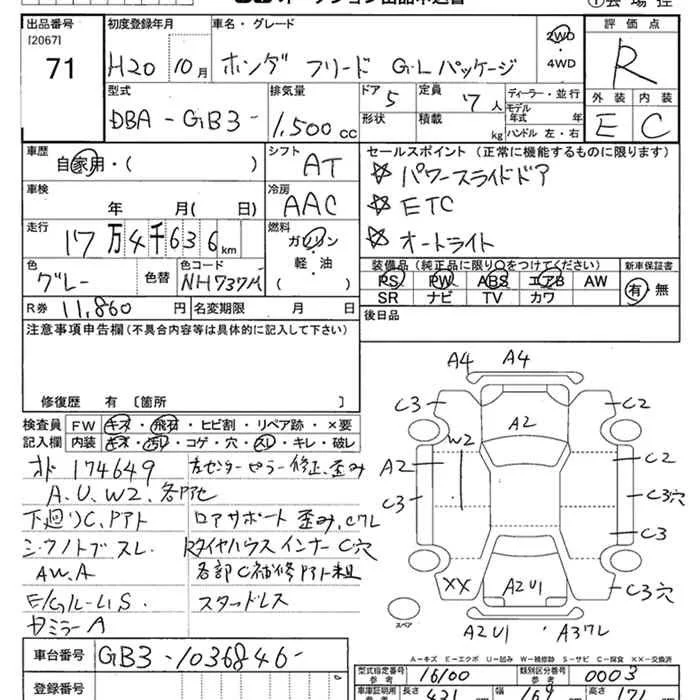 出品番号 初度登録年月 車名・グレード 評価点
[2067]
71 H20 10月 ホンダ フリード G・Lパッケージ 2WD・4WD R
型式 排気量 ドア 5 定員 7人 ディーラー・並行 外装 内装
DBA-GB3- 1,500cc 形状 積載 kg モデル年式 年式 ハンドル 左・右 E C
車歴 シフト セールスポイント(正常に機能するものに限ります)
自家用・( ) AT ☆ パワースライドドア
車検 冷房 ☆ ETC
年 月( 日) AAC ☆ オートライト
走行 燃料
17万4千636km ガソリン 装備品(純正品に限り○をつけてください) 新車保証書
色 色替 色コード 軽・油 PS PW ABS エアB AW 有・無
グレー NH737M ( ) SR ナビ TV カワ
R券 11,860円 名変期限 月 日 後日品
注意事項申告欄(不具合内容等は具体的に記入して下さい)
修復歴 有〔箇所 〕
検査員 FW キズ・飛石・ヒビ割・リペア跡・×要
記入欄 内装 キズ・汚リ・コゲ・穴・スリ・キレ・破レ
174649 右センターピラー修正、歪み
A.U.W2.各部
下廻りC、 ロアサポート歪み、
インナーC穴
AW.A 各部C補修
スタッドレス
ミラーA
A4 A4
C3 C2
A2
W2
A2 C2
C3 C3穴
C3
XX A2U1 C3穴
スペア A2U1
車台番号 GB3-1036846-
登録番号
A-キズ E-エクボ U-凹み W-補修跡 S-サビ C-腐食 XX-交換済
型式指定番号 参考 16100 類別区分番号 参考 0003
車庫証明用 長さ 421 幅 169 高さ 171